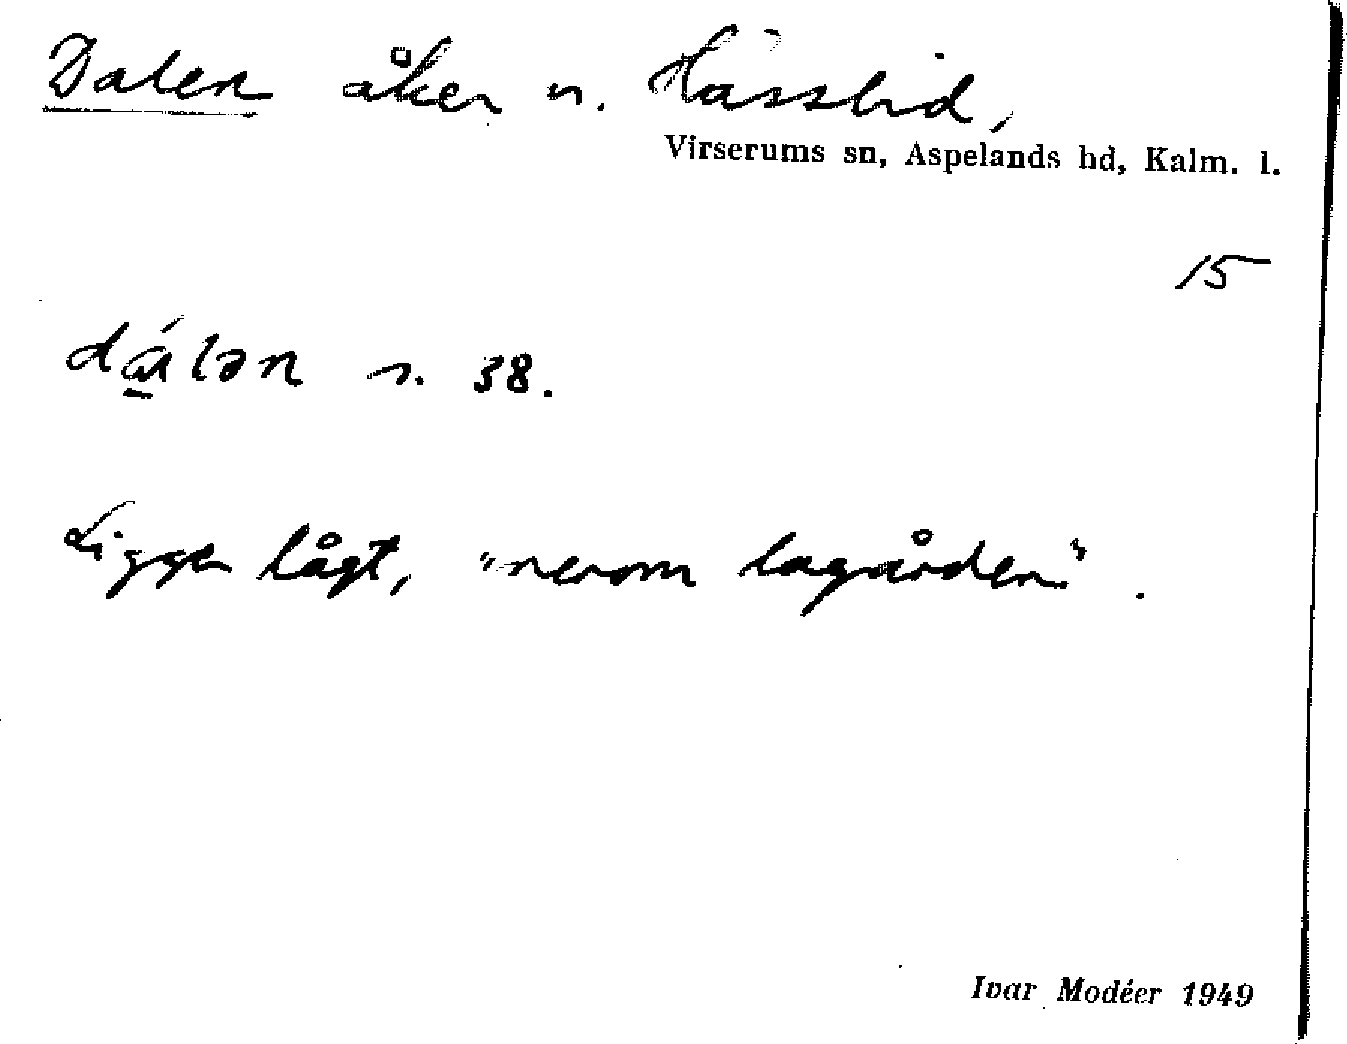 Dalen åker n. Hässlid,
Virserums sn, Aspelands hd, Kalm. l.
15
dálən s. 38.
Ligger lågt, "nerom lagården".
Ivar Modéer 1949